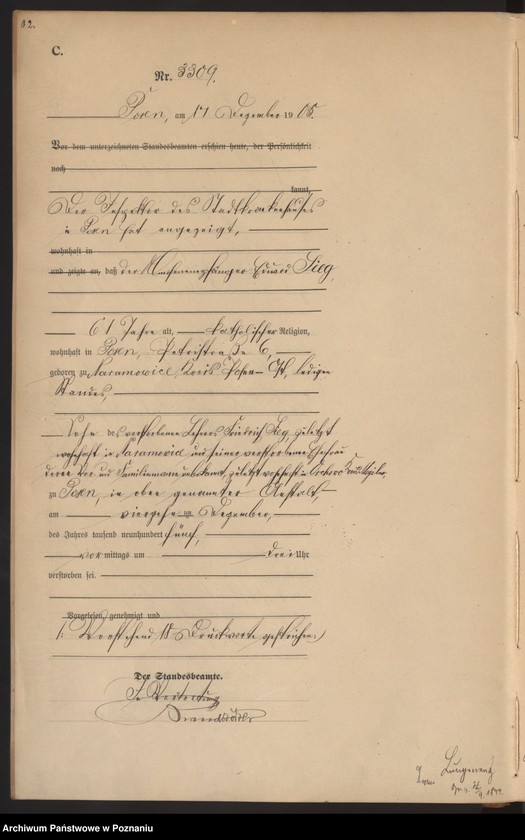 32.
C.
Nr. 3309.
Posen, am 17 Dezember 1905.
Vor dem unterzeichneten Standesbeamten erschien heute, der Persönlichkeit
nach
kannt,
Der Inspektor des Stadtkrankenhauses
in Posen hat angezeigt,
wohnhaft in
und zeigte an, daß der Almosenempfänger Eduard Sieg
61 Jahre alt, katholischer Religion,
wohnhaft in Posen, Petristraße 6,
geboren zu Naramowice, Kreis Posen-Ost, ledigen
Standes,
Sohn des verstorbenen Lehrers Friedrich Sieg, zuletzt
wohnhaft in und seiner verstorbenen Ehefrau
deren Vor und Familienname unbekannt, zuletzt wohnhaft in
zu Posen, in oben genannter Anstalt,
am vierzehn ten Dezember,
des Jahres tausend neunhundert fünf,
vor mittags um drei Uhr
verstorben sei.
Vorgelesen, genehmigt und
Vorstehend 18 Druckworte gestrichen.
Der Standesbeamte.
In Vertretung
Archiwum Państwowe w Poznaniu